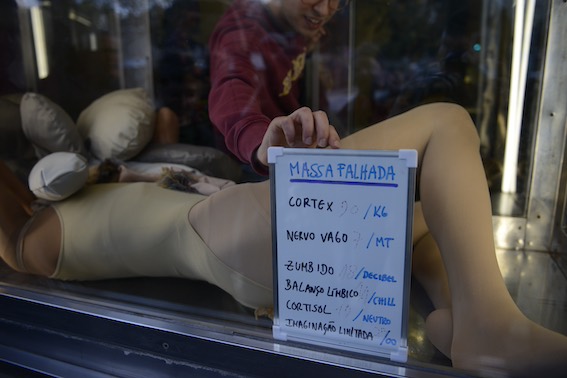 MASSA FALHADA
CORTEX /KG
NERVO VAGO 7/MT
ZUMBIDO /DECIBEL
BALANÇO LÍMBICO /CHILL
CORTISOL /NEUTRO
IMAGINAÇÃO LIMITADA /00